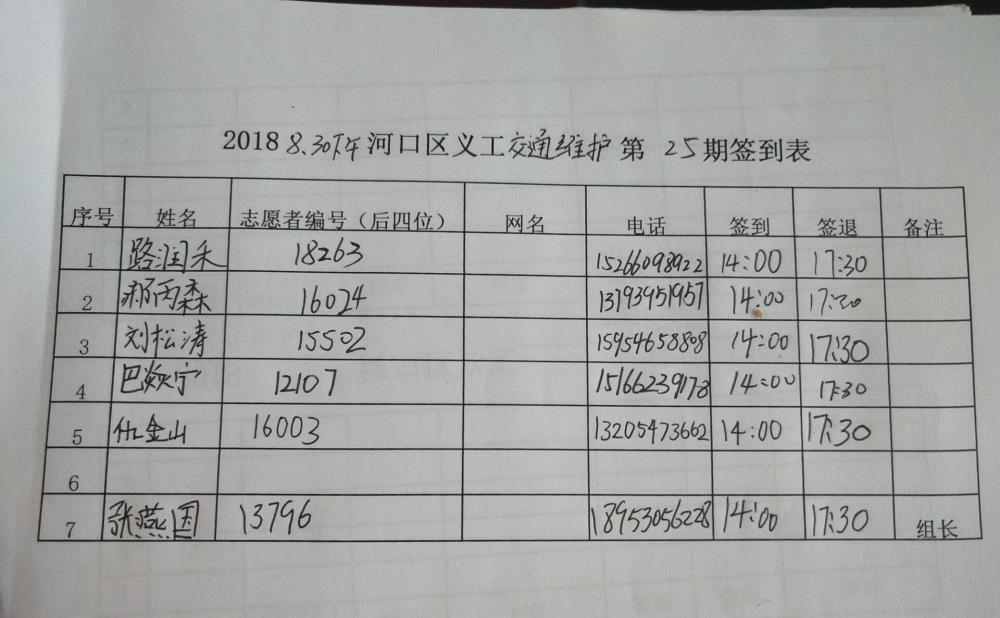 2018 8.30下午 河口区义工 交通维护 第 25 期签到表
序号 姓名 志愿者编号（后四位） 网名 电话 签到 签退 备注
1 路润禾 18263 15266098922 14:00 17:30
2 郝丙森 16024 13793951957 14:00 17:30
3 刘松涛 15502 15954658808 14:00 17:30
4 巴焱宁 12107 15166239178 14:00 17:30
5 金山 16003 13205473662 14:00 17:30
6
7 张燕国 13796 18953056228 14:00 17:30 组长